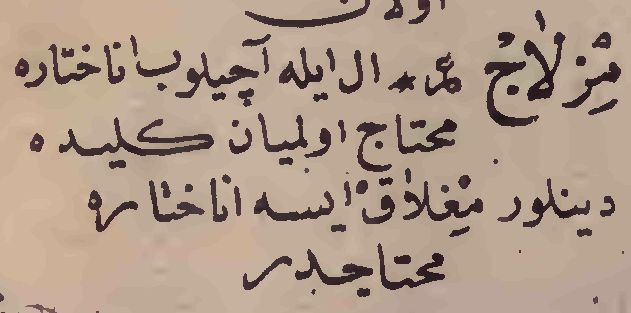 اولان
مِزلاجْ عر * ال ايله آچيلوب اناختاره
محتاج اولميان كليده
دينلور مِغلاقْ ايسه اناختاره
محتاجدر